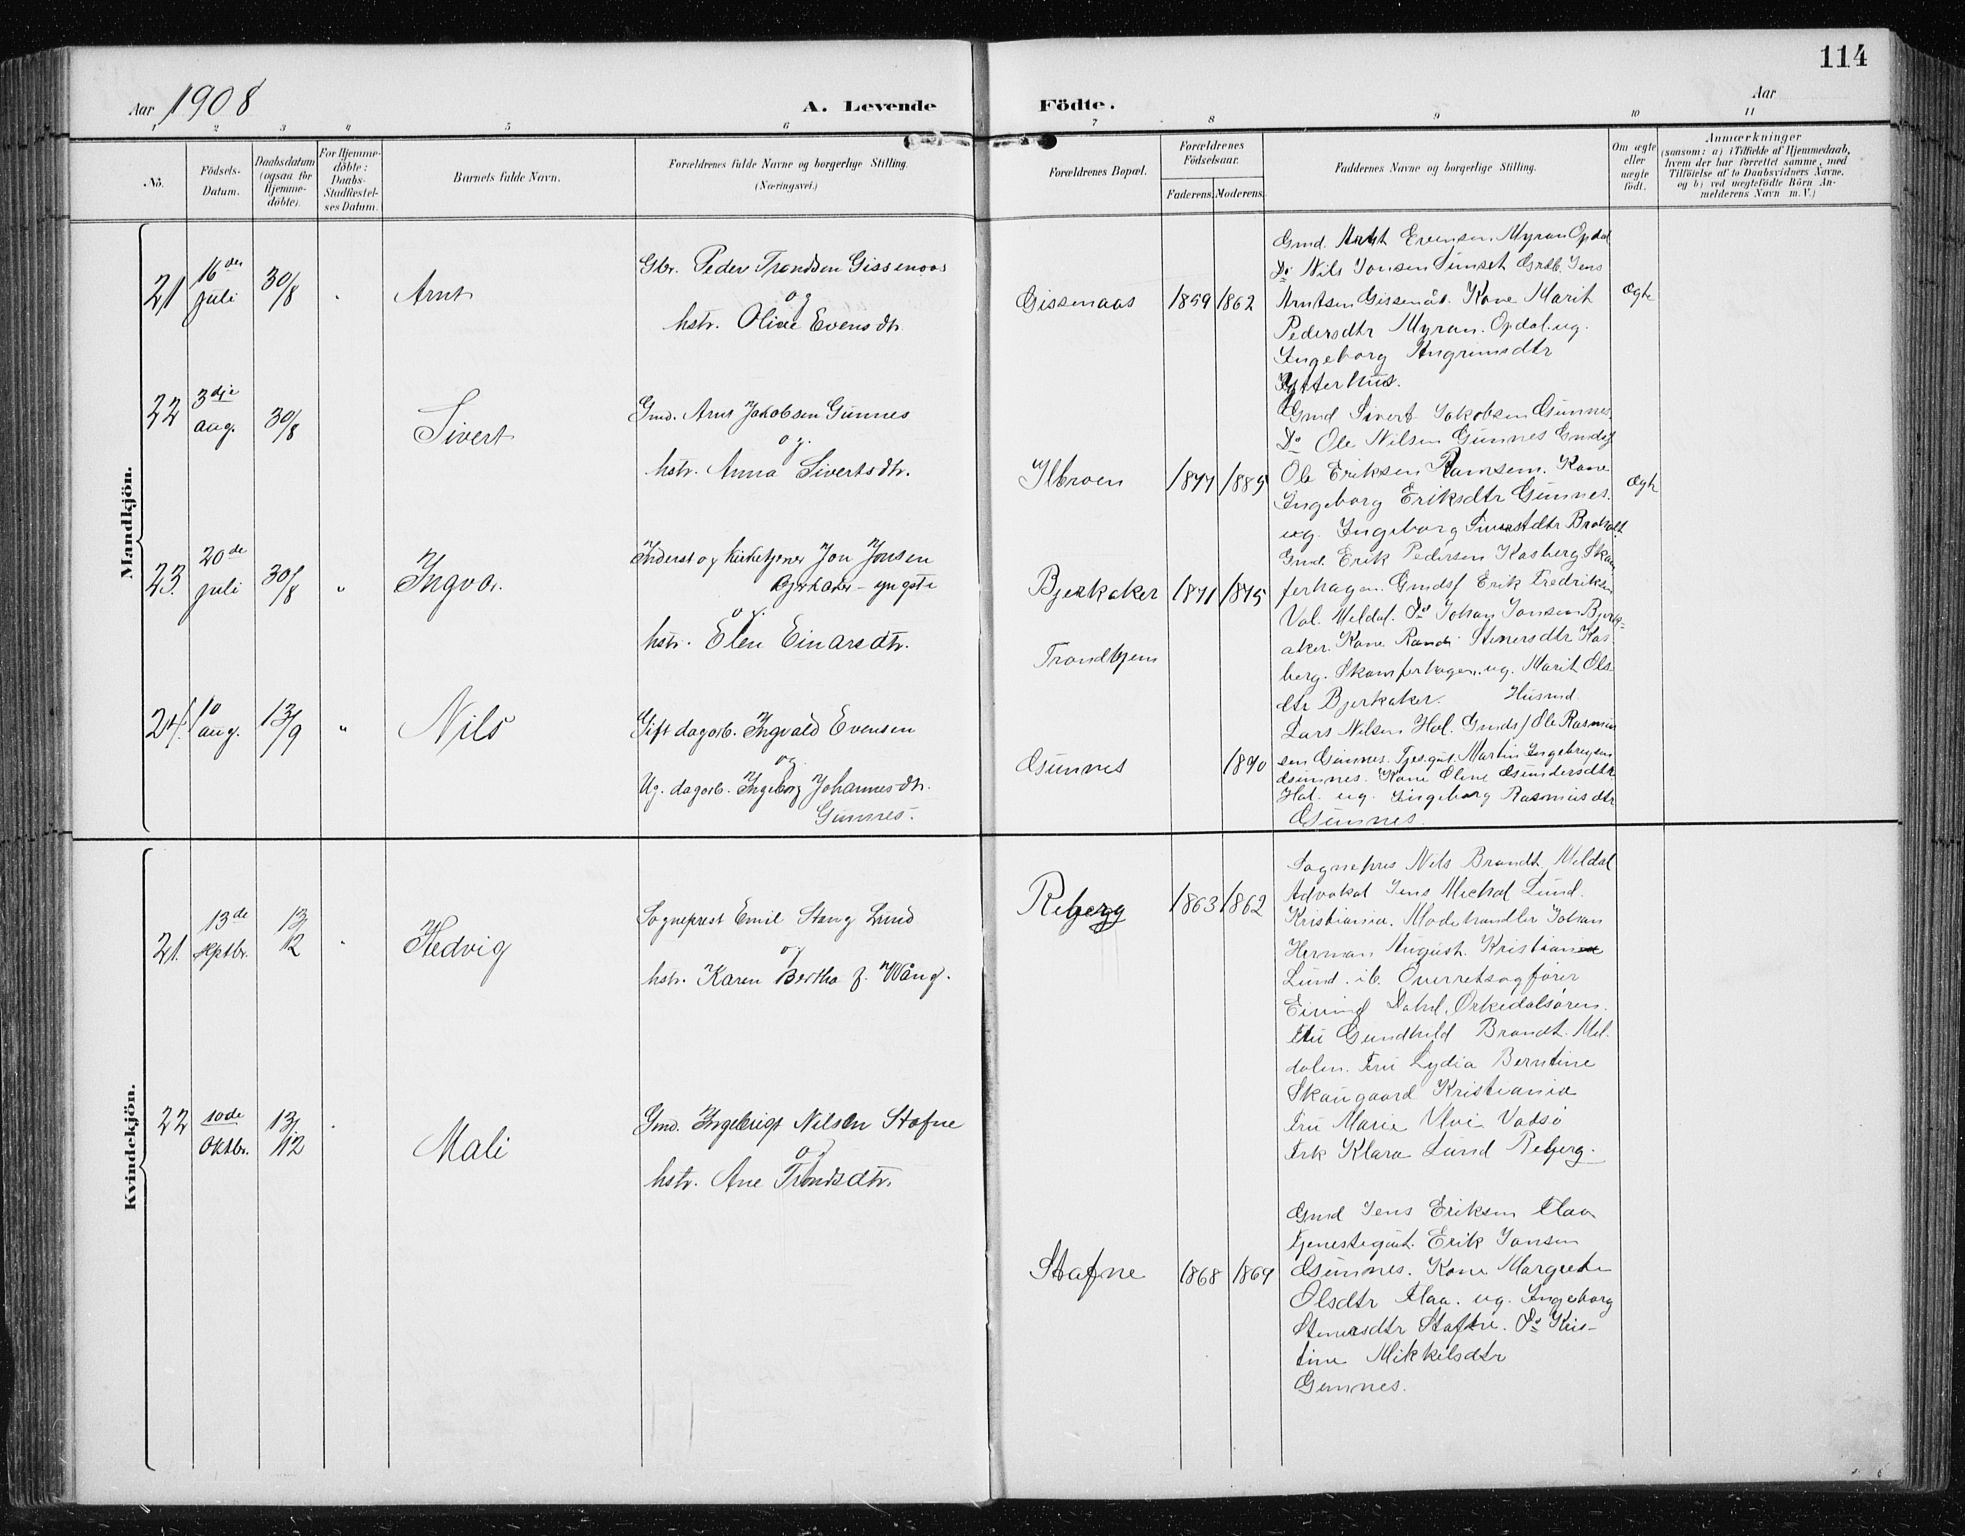 114
Aar 1908
A. Levende Födte.
Aar
1 2 3 4 5 6 7 8 9 10 11
No.
Födsels-
Datum.
Daabsdatum
(ogsaa for
Hjemme-
döbte).
For Hjemme-
döbte:
Daabs-
Stadfæstel-
ses Datum.
Barnets fulde Navn.
Forældrenes fulde Navne og borgerlige Stilling.
(Næringsvei.)
Forældrenes Bopæl.
Forældrenes
Födselsaar.
Faderens. Moderens.
Faddernes Navne og borgerlige Stilling.
Om ægte
eller
uægte
födt.
Anmærkninger
(saasom: a) i Tilfælde af Hjemmedaab,
hvem der har forrettet samme, med
Tilföielse af to Daabsvidners Navne.
og b) ved uægtefödte Börn An-
melderens Navn m. V.)
Mandkjön.
21 16de juli 30/8 " Arnt
Gbr. Peder Trondsen Gissenaas
og
hstr. Olive Evensdtr.
Gissenaas 1859 1862
Gmd. Arnt Evensen Myran Opdal
Do Nils Jonsen Sunset Grdb. Jens
Arntsen Gissenås. Kone Marit
Pedersdtr Myran. Opdal. ug.
Ingeborg Angrimsdtr
Ytterhus.
Ægte
22 3dje aug. 30/8 Sivert
Gmd. Arnt Jakobsen Gunnes
og
hstr. Anna Sivertsdtr.
Ilbroen 1877 1885
Gmd Sivert Jakobsen Gunnes
Do Ole Nilsen Gunnes Gmds/
Ole Eriksen Ramsem. Kone
Ingeborg Eriksdtr Gunnes.
ug. Ingeborg Sivertsdtr
Ægte
23. 20de juli 30/8 " Ingvar.
Inderst og kirketjener Jon Jonsen
Bjerkaker - yngste
og
hstr. Elen Einarsdtr.
Bjerkaker 1871 1875
Trondhjem
Gmd. Erik Pedersen Kasberg Skam
ferhagen. Gmds/ Erik Fredriksen
Val. Meldal. Do Johan Jonsen Bjerk-
aker. Kone Randi Stenersdtr Kas-
berg. Skamferhagen. ug. Marit Ols-
dtr Bjerkaker.
24. 10 aug. 13/9 " Nils
Gift dagarb. Ingvald Evensen
og
Ug. dagarb. Ingeborg Johannesdtr.
Gunnes.
Gunnes 1890
Husmd.
Lars Nilsen Hol. Gmds/ Ole Rasmus
sen Gunnes. Tjes.gut. Martin Ingebrigtsen
Gunnes. Kone Oline Gundersdtr
Hol. ug. Ingeborg Rasmusdtr
Gunnes.
Kvindekjön.
21. 13de sptbr. 13/12 " Hedvig
Sogneprest Emil Stang Lund
og
hstr. Karen Bertha f. Wang.
Reberg 1863 1862
Sognepres Nils Brandt Meldal
Advokat Jens Michal Lund.
Kristiania. Modehandler Johan
Herman August. Kristiania
Lund. ib. Overretssagfører
Eivind Dahl. Orkedalsøren.
Fru Gundhild Brandt. Mel-
dalen. Fru Lydia Berntine
Skaugaard Kristiania
Fru Marie Vadsø
Frk Klara Lund Reberg.
22 10de Oktbr. 13/12 Mali
Gmd. Ingebrigt Nilsen Stafne
og
hstr. Ane Trondsdtr.
Stafne 1868 1869
Gmd Jens Eriksen Flaa
tjenestegut. Erik Jonsen
Gunnes. Kone Margrete
Olsdtr Flaa. ug. Ingeborg
Stenersdtr Stafne. Do Kris-
tine Mikkelsdtr
Gunnes.